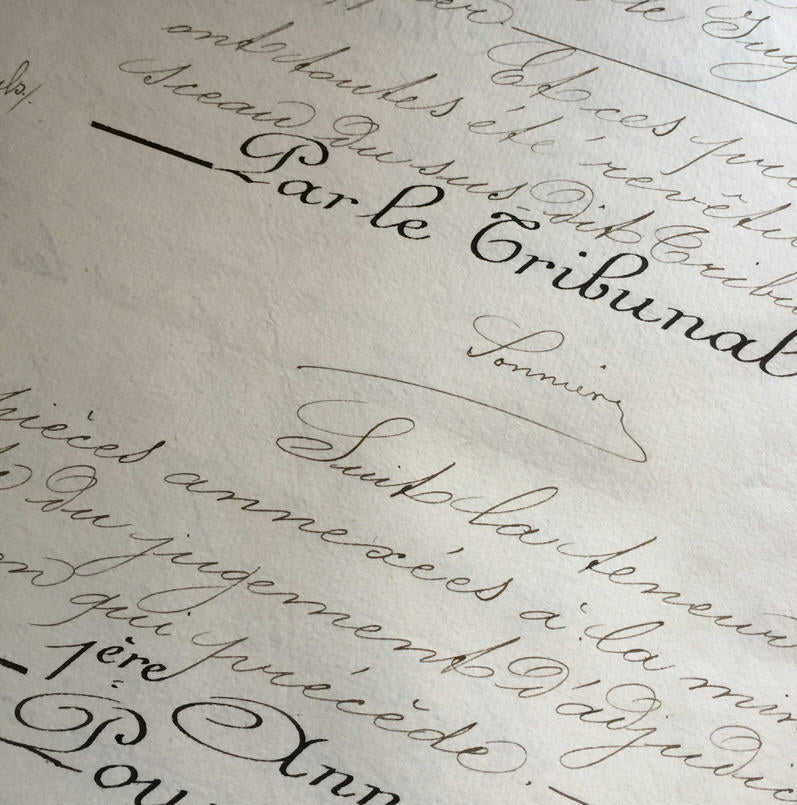 Et ces
ont toutes été revêtu
sceau du sus-dit Tribu
Par le Tribunal
Sonnier
Suit la teneur
pièces annexées à la min
du jugement d'adjudic
qui précède.
1ère Ann